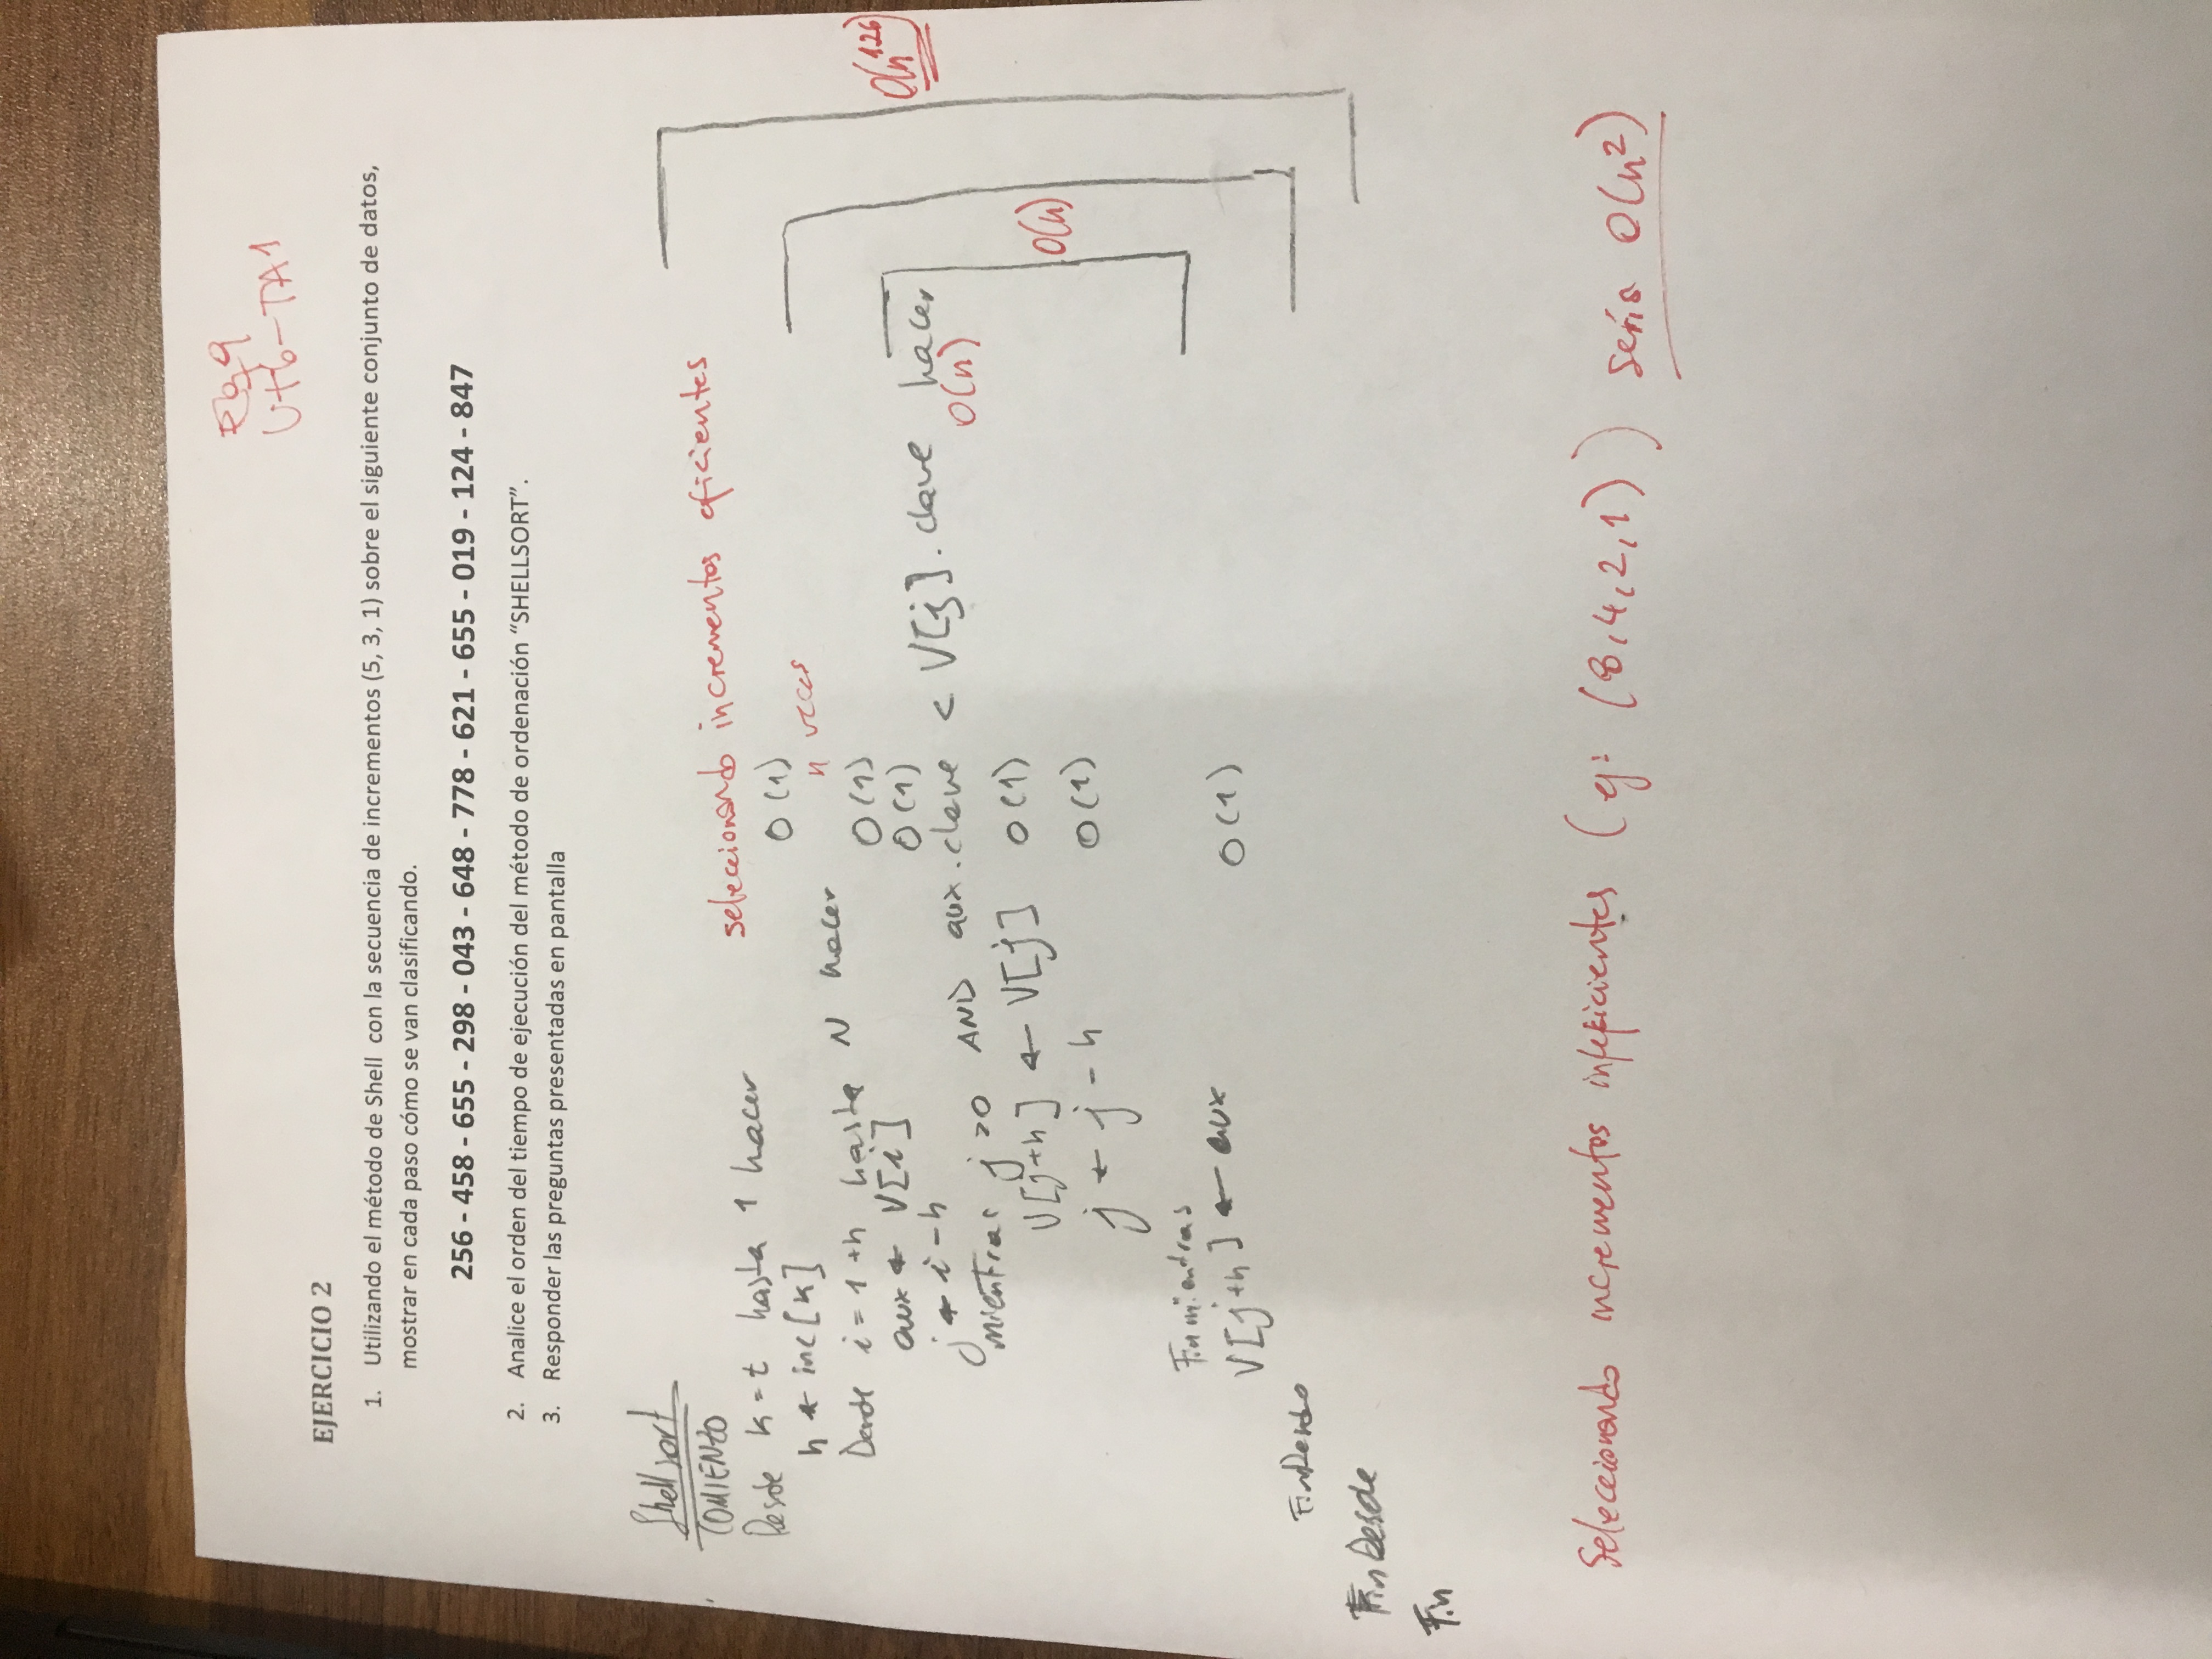 Eq 9
UT6-TA1
EJERCICIO 2
1. Utilizando el método de Shell con la secuencia de incrementos (5, 3, 1) sobre el siguiente conjunto de datos,
mostrar en cada paso cómo se van clasificando.
256 - 458 - 655 - 298 - 043 - 648 - 778 - 621 - 655 - 019 - 124 - 847
2. Analice el orden del tiempo de ejecución del método de ordenación “SHELLSORT”.
3. Responder las preguntas presentadas en pantalla
Shellsort
COMIENZO
seleccionando incrementos eficientes
Desde k = t hasta 1 hacer
h ← inc[k] O(1)
n veces
Desde i = 1 + h hasta N hacer
aux ← V[i] O(1)
j ← i - h O(1)
mientras j > 0 AND aux.clave < V[j].clave hacer
O(n)
V[j+h] ← V[j] O(1)
j ← j - h O(1)
Fin mientras
V[j+h] ← aux O(1)
FinDesde
FinDesde
Fin
O(n)
O(n^1.26)
Seleccionando incrementos ineficientes (ej: (8,4,2,1)) sería O(n²)